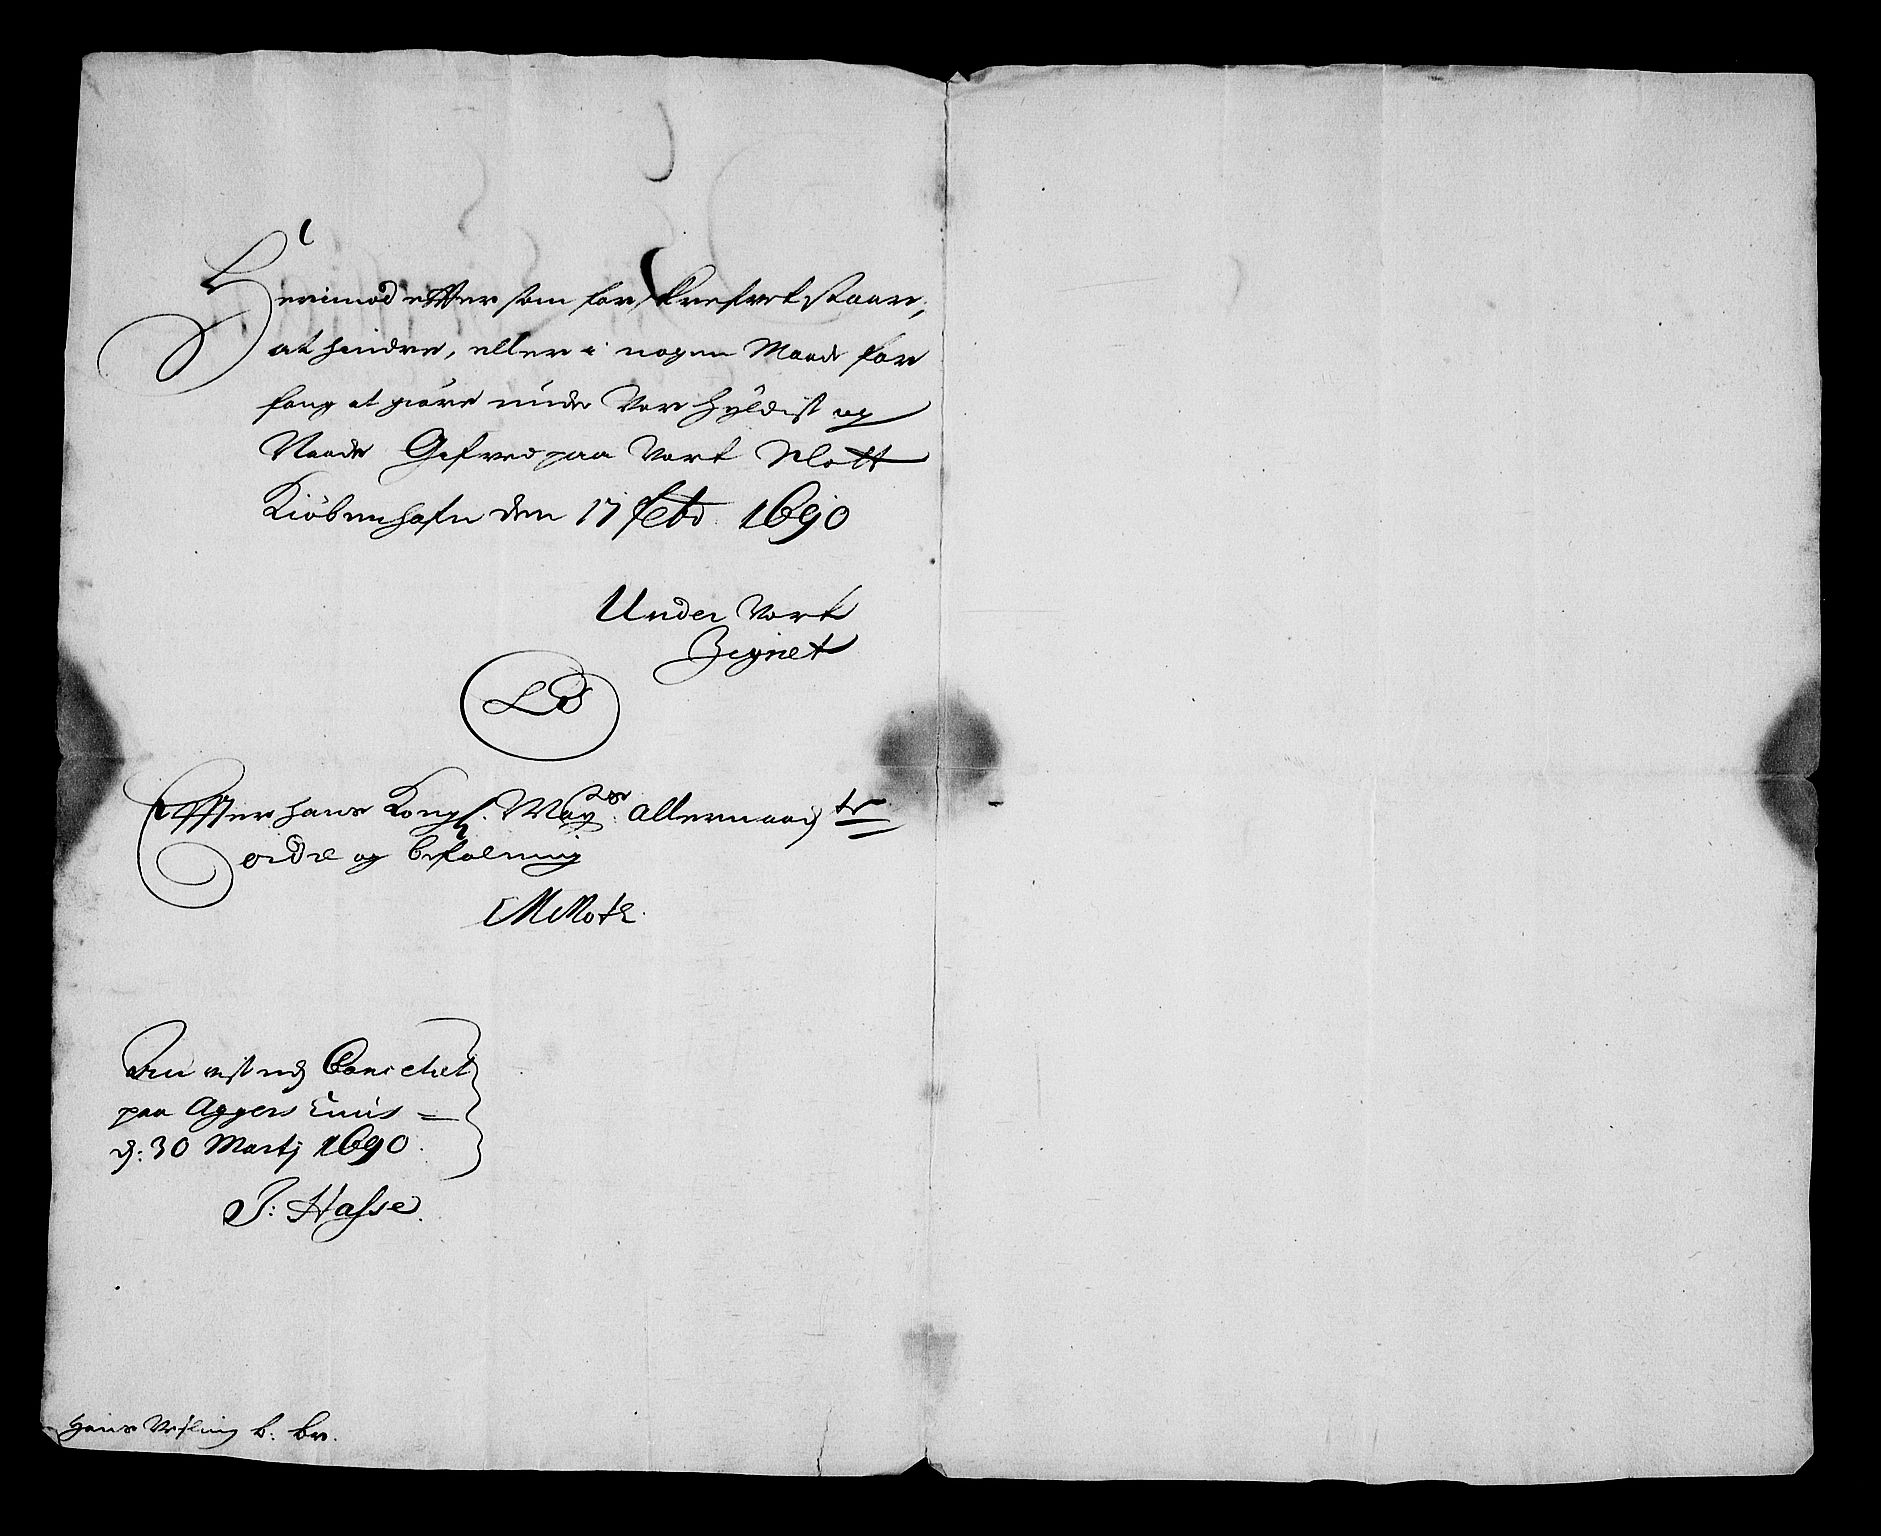 Herimod efftersom forskrefvet staar,
at hindre, eller i nogen Maade for
fang at giøre under Vor Hyldist og
Naade Gifved paa Vort Slott
Kiöbenhafn den 17 febr: 1690
Under Vort
Zignet
LS
Effter hans Kongl. May.ts allernaadigste
ordre og befalning
MMoth.
paa Aggershuus
d: 30 Martj 1690.
J: Hasse.
Hans b: br.